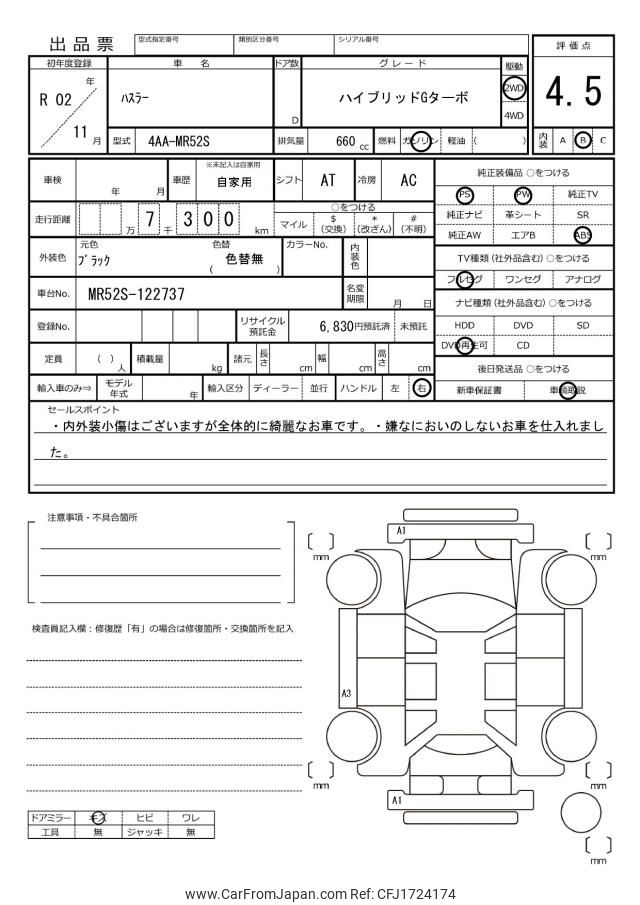 出品票 型式指定番号 類別区分番号 シリアル番号
評価点
4.5
初年度登録 車名 ドア数 グレード 駆動
R 02 年 11 月 ハスラー D ハイブリッドGターボ 2WD 4WD
型式 4AA-MR52S 排気量 660 cc 燃料 ガソリン 軽油 ( ) 内装 A B C
車検 年 月 車歴 ※未記入は自家用 自家用 シフト AT 冷房 AC
純正装備品 ○をつける
PS PW 純正TV
純正ナビ 革シート SR
純正AW エアB ABS
走行距離 万 7 千 300 km ○をつける
マイル $(交換) *(改ざん) #(不明)
外装色 元色 ブラック 色替 ( 色替無 ) カラーNo. 内装色
TV種類 (社外品含む) ○をつける
フルセグ ワンセグ アナログ
車台No. MR52S-122737 名変期限 月 日
ナビ種類 (社外品含む) ○をつける
HDD DVD SD
DVD再生可 CD
登録No. リサイクル預託金 6,830円預託済 未預託
定員 ( ) 人 積載量 kg 諸元 長さ cm 幅 cm 高さ cm
後日発送品 ○をつける
新車保証書 車輌取説
輸入車のみ⇒ モデル年式 年 輸入区分 ディーラー 並行 ハンドル 左 右
セールスポイント
・内外装小傷はございますが全体的に綺麗なお車です。・嫌なにおいのしないお車を仕入れまし
た。
注意事項・不具合箇所
検査員記入欄：修復歴「有」の場合は修復箇所・交換箇所を記入
A1
mm
mm
A3
mm
mm
A1
mm
ドアミラー キズ ヒビ ワレ
工具 無 ジャッキ 無
www.CarFromJapan.com Ref: CFJ1724174